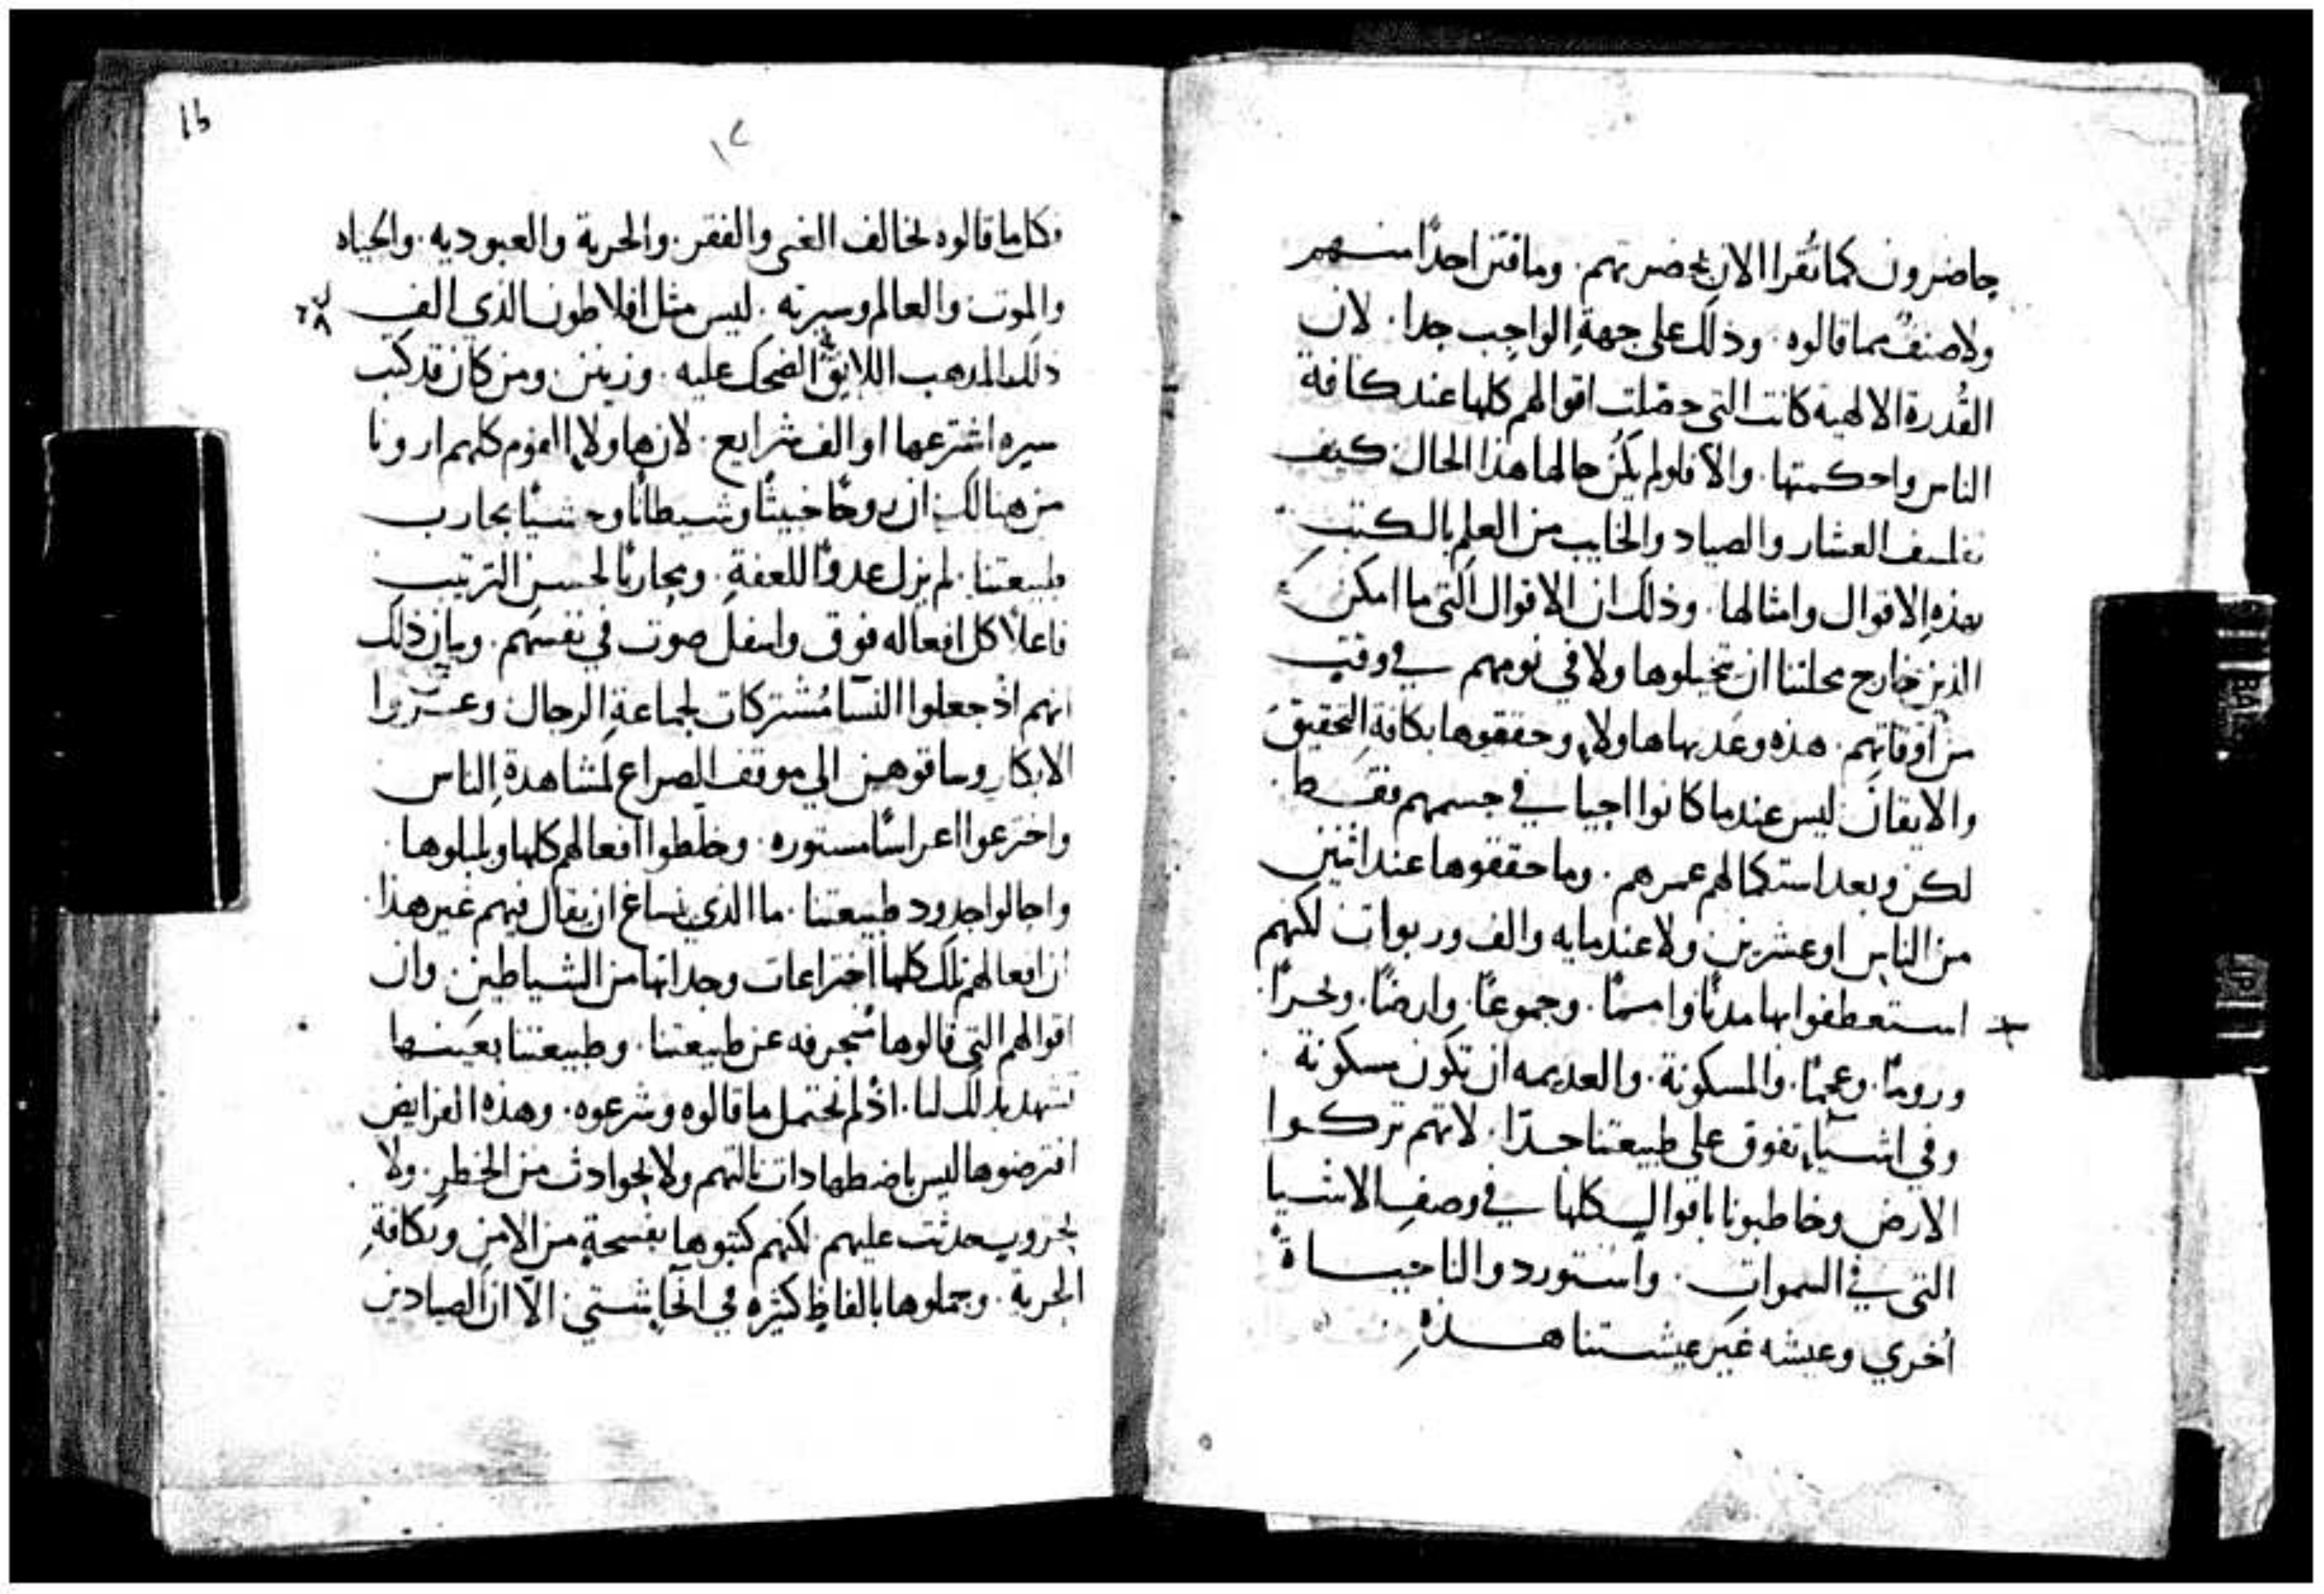 حاضرون كما تُقرا الان بحضرتهم. وما قتن احدًا منهم
ولا صنفٌ مما قالوه. وذلك على جهةِ الواجب جدا. لان
القُدرة الالهية كانت التي حصّلت اقوالهم كلها عند كافة
الناس واحكمتها. والا فلو لم يكُن حالها هذا الحال كيف
تفلسف العشار والصياد والخايب من العلمِ بالكتبِ
بهذهِ الاقوال وامثالها. وذلك ان الاقوال التي ما امكن
الذين خارج محلتنا ان يتخيلوها ولا في نومهم في وقتٍ
من اوقاتهم. هذه وعَد بها هاولاءِ وحققوها بكافة التحقيق
والايقان ليس عندما كانوا احيا في جسمهم فقط
لكن وبعد استكمالهم عمرهم. وما حققوها عند اثنين
من الناس او عشرين ولا عند مايه والف وربوات لكنهم
استعطفوا بها مدنًا وامـمًا. وجموعًا. وارضًا. وبحرًا.
ورومًا. وعجمًا. والمسكونة. والعديمه ان تكون مسكونة
وفي اشياءٍ تفوق على طبيعتنا جدًا. لانهم تركوا
الارض وخاطبونا باقوالٍ كلها في وصفِ الاشيا
التي في السمواتِ. واستوردوا لنا حيـاةً
اُخري وعيشه غير عيشتنا هـذهِ
16
١٢
وكلما قالوه يخالف الغني والفقر. والحرية والعبوديه. والحياه
والموت والعالم وسيرته. ليس مثل افلاطون الذي الف
ذلك المذهب اللايق الضحك عليه. وزينن. ومن كان قد كتب
سيره اشترعها او الف شرايع. لان هاولاءِ القوم كلهم ارونا
من هنالك ان روحًا خبيثًا وشيطانًا وحشيًا يحارب
طبيعتنا. لم يزل عدوًا للعفةِ. ومحاربًا لحسنِ الترتيب
فاعلاً كل افعاله فوق واسفل صوت في نفسهم. وبيان ذلك
انهم اذ جعلوا النسا مُشتركات لجماعةِ الرجال وعـرّوا
الابكار وساقوهن الي موقف الصراع لمشاهدةِ الناس
واخترعوا اعراسًا مستوره. وخلطوا افعالهم كلها وبلبلوها.
واحالوا حدود طبيعتنا. ما الذي يساغ ان يقال فيهم غير هذا.
ان افعالهم تلك كلها اختراعات وجداتها من الشياطين. وان
اقوالهم التي قالوها مُنحرفه عن طبيعتنا. وطبيعتنا بعينها
تشهد بذلك لنا. اذ لم تحتمل ما قالوه وشرعوه. وهذه الفرايض
افترضوها ليس باضطهادات نالتهم ولا بحوادث من الخطرِ. ولا
بحروبٍ حدثت عليهم لكنهم كتبوها بفسحةٍ من الامنِ وبكافةِ
الحرية. وجملوها بالفاظٍ كثيره في انحاءٍ شتي. الا ان الصيادين